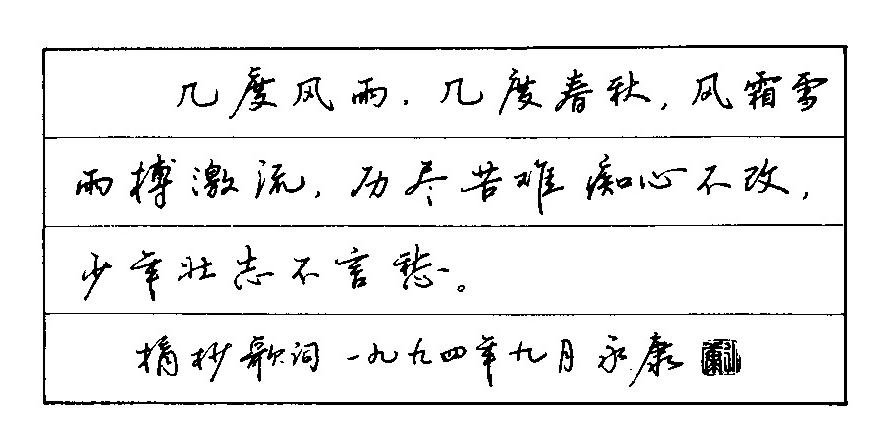 几度风雨，几度春秋，风霜雪
雨搏激流，历尽苦难痴心不改，
少年壮志不言愁。
摘抄歌词 一九九四年九月 永康